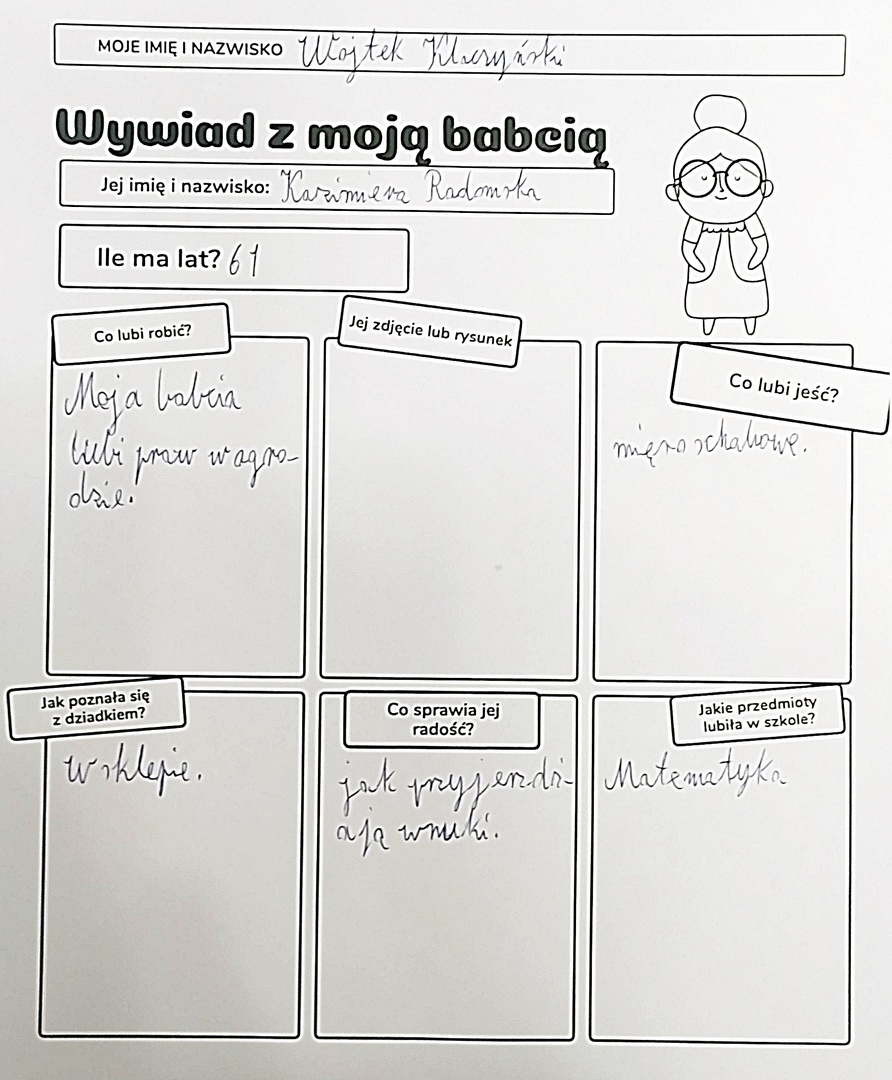 MOJE IMIĘ I NAZWISKO Wojtek
Wywiad z moją babcią
Jej imię i nazwisko: Kazimiera Radomska
Ile ma lat? 61
Co lubi robić?
Moja babcia
lubi praw w ogro-
dzie.
Jej zdjęcie lub rysunek
Co lubi jeść?
mięso schabowe.
Jak poznała się
z dziadkiem?
W sklepie.
Co sprawia jej
radość?
jak przyjerdż-
ają wnuki.
Jakie przedmioty
lubiła w szkole?
Matematyka